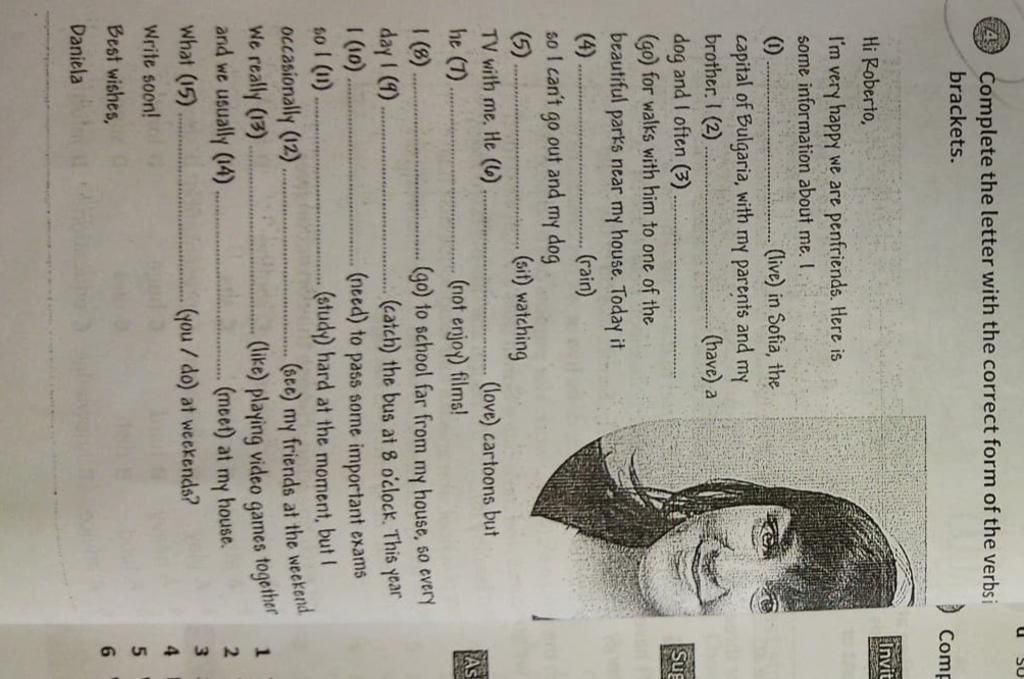 4 Complete the letter with the correct form of the verbs i
brackets.
Hi Roberto,
I'm very happy we are penfriends. Here is
some information about me. I
(1) .................... (live) in Sofia, the
capital of Bulgaria, with my parents and my
brother. I (2) .................... (have) a
dog and I often (3) ....................
(go) for walks with him to one of the
beautiful parks near my house. Today it
(4) .................... (rain)
so I can't go out and my dog
(5) .................... (sit) watching
TV with me. He (6) .................... (love) cartoons but
he (7) .................... (not enjoy) films!
I (8) .................... (go) to school far from my house, so every
day I (9) .................... (catch) the bus at 8 o'clock. This year
I (10) .................... (need) to pass some important exams
so I (11) .................... (study) hard at the moment, but I
occasionally (12) .................... (see) my friends at the weekend.
We really (13) .................... (like) playing video games together
and we usually (14) .................... (meet) at my house.
What (15) .................... (you / do) at weekends?
Write soon!
Best wishes,
Daniela
Comp
Invit
Sug
As
1
2
3
4
5
6